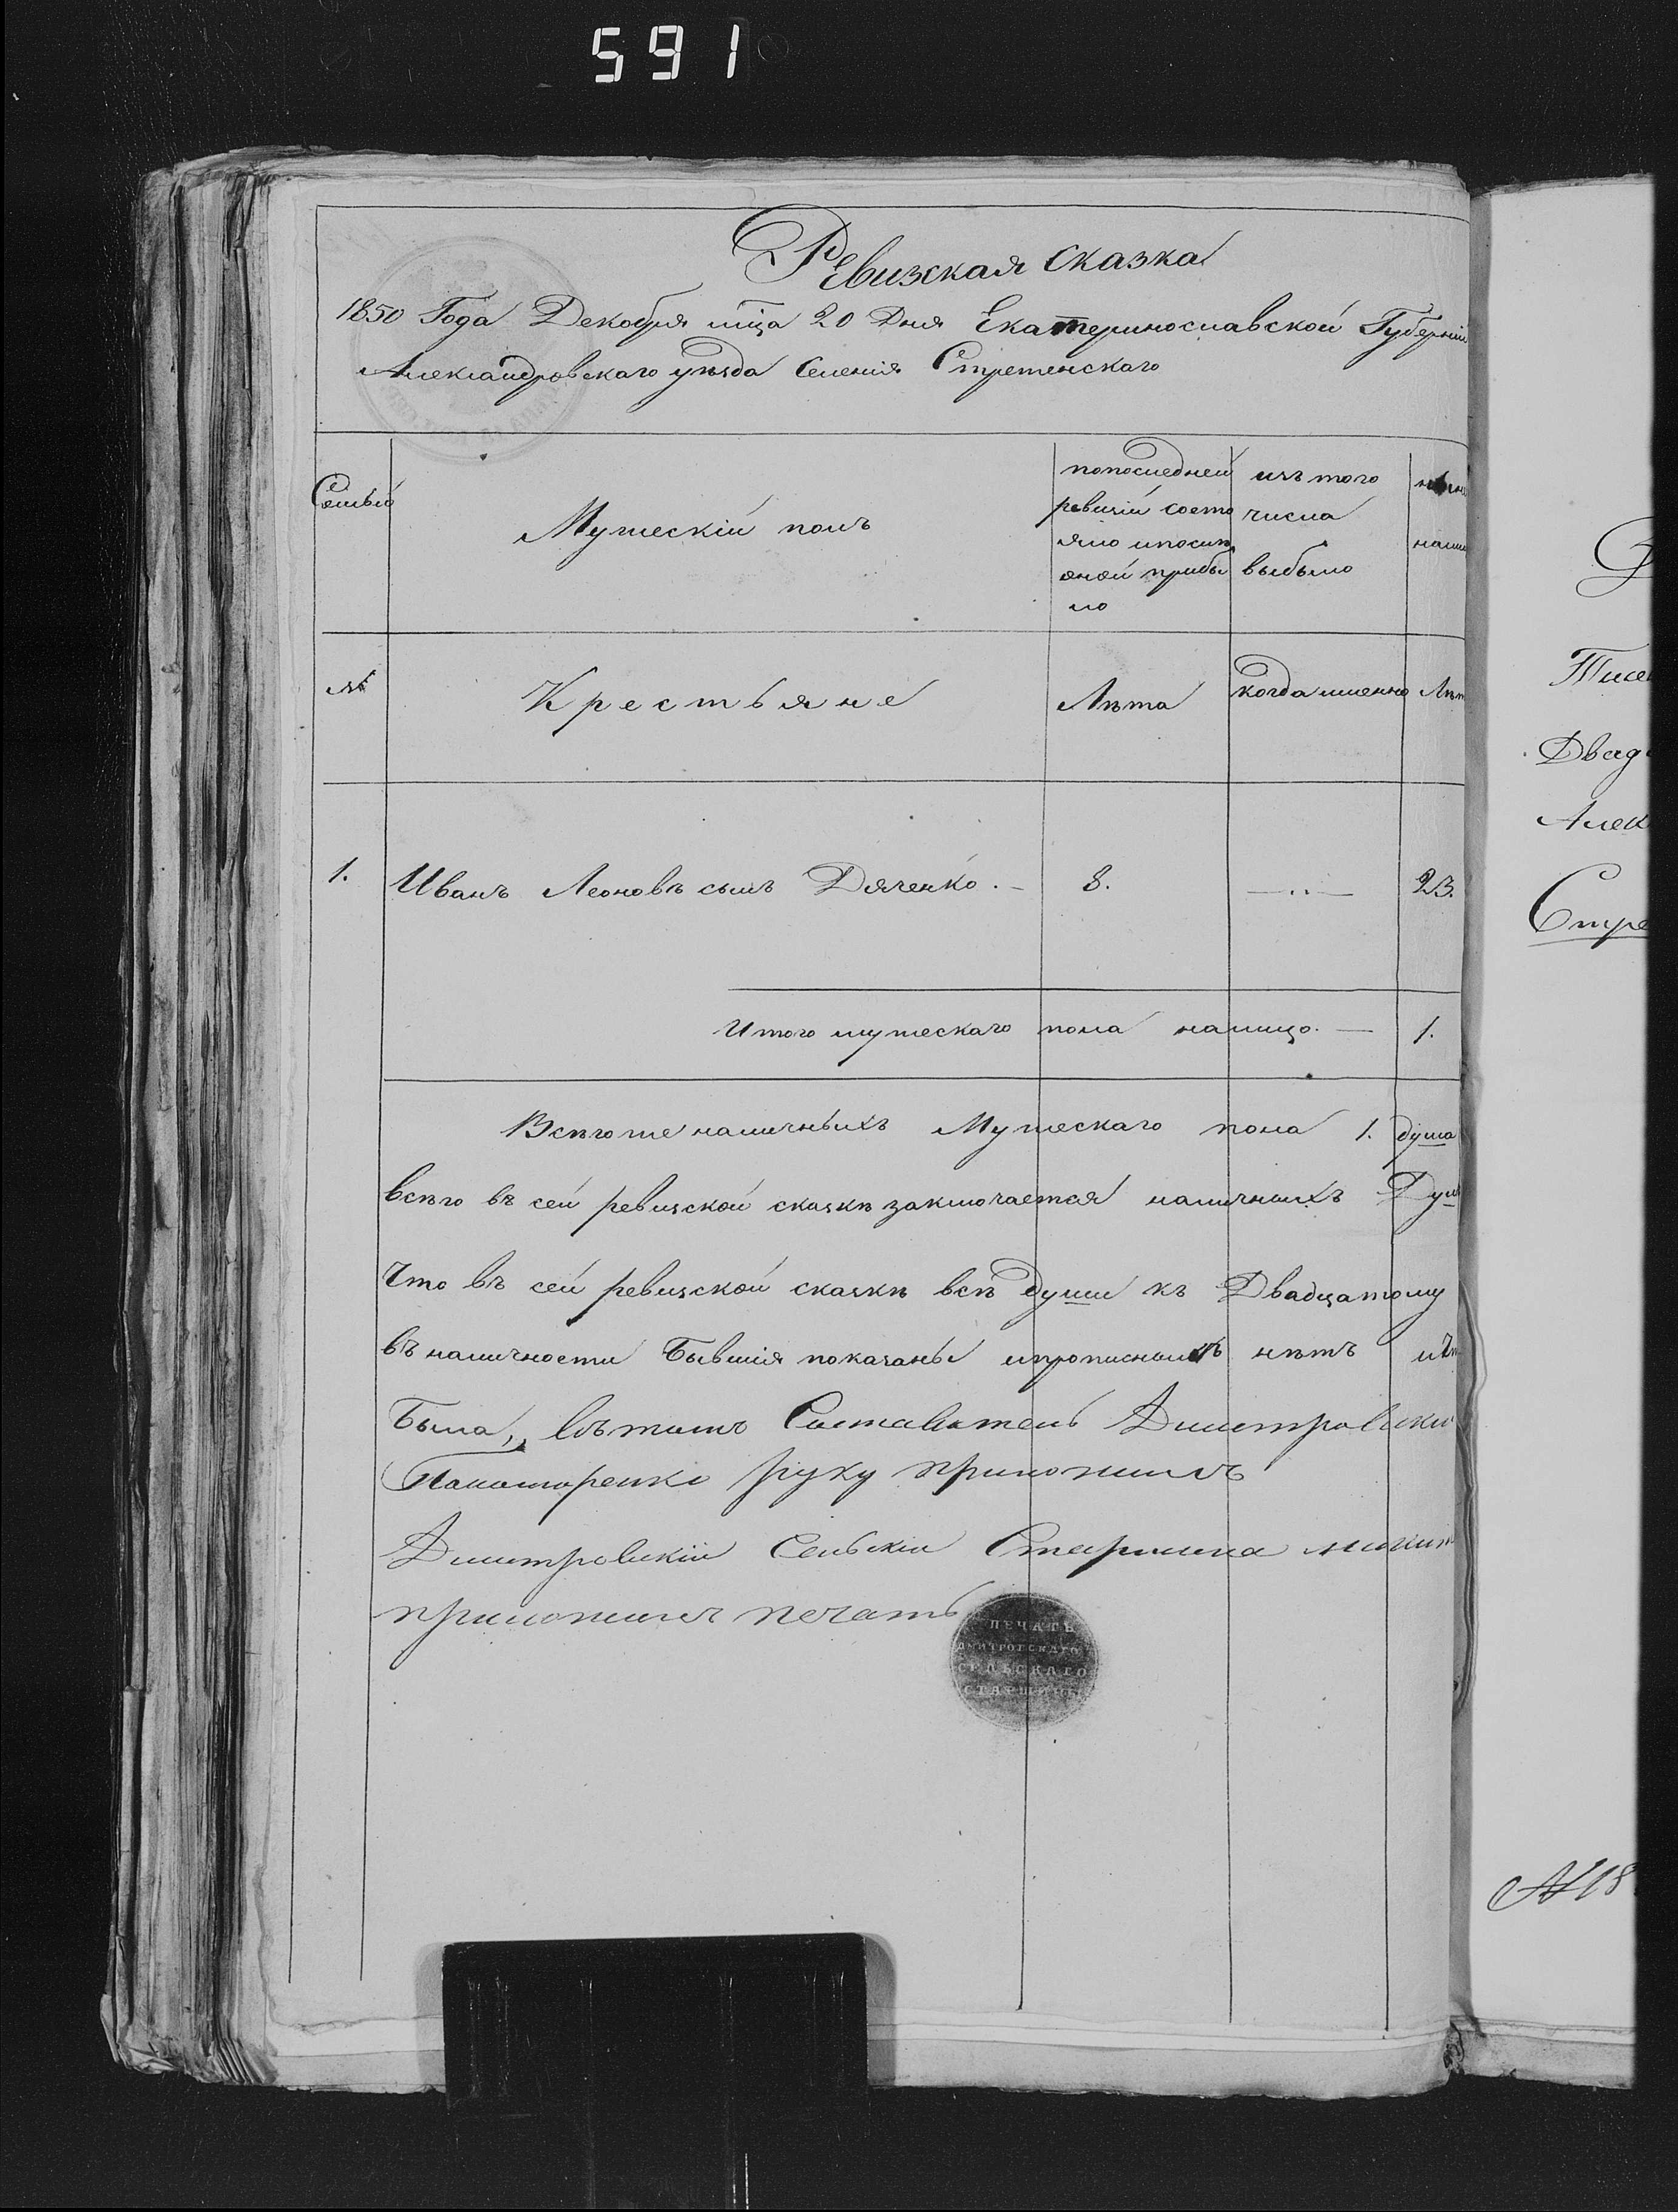 591
Ревизская сказка
1850 Года Декобря мѣца 20 Дня Екатеринославской Губерніи
Александровскаго уѣзда Селенія Стретенскаго
Семьи
Мужескій полъ
попоследней
ревизіи состо
яло ипослѣ
оной прибы
ло
изъ того
числа
выбыло
нынѣ
нали
№
Крестьяне
Лѣта
когда именно
Лѣт
1.
Иванъ Леоновъ сынъ Дяченко. –
8.
—„—
23.
Итого мужескаго пола налицо. — 1.
Всѣгоже наличныхъ Мужескаго пола 1. душа
всѣго въ сей ревизской сказкѣ заключается наличныхъ Душ
Что въ сей ревизской сказкѣ всѣ души къ Двадцатому
въ наличности бывшія показаны ипрописныхъ нѣтъ
была, вътомъ Составитель Дмитровски
руку приложилъ
Дмитровскій Сельскій Старшина
приложилъ печать
ПЕЧАТЬ
ДМИТРОВСКАГО
СЕЛЬСКАГО
СТАРШИНЫ
Двад
Алек
Стре
№ 18